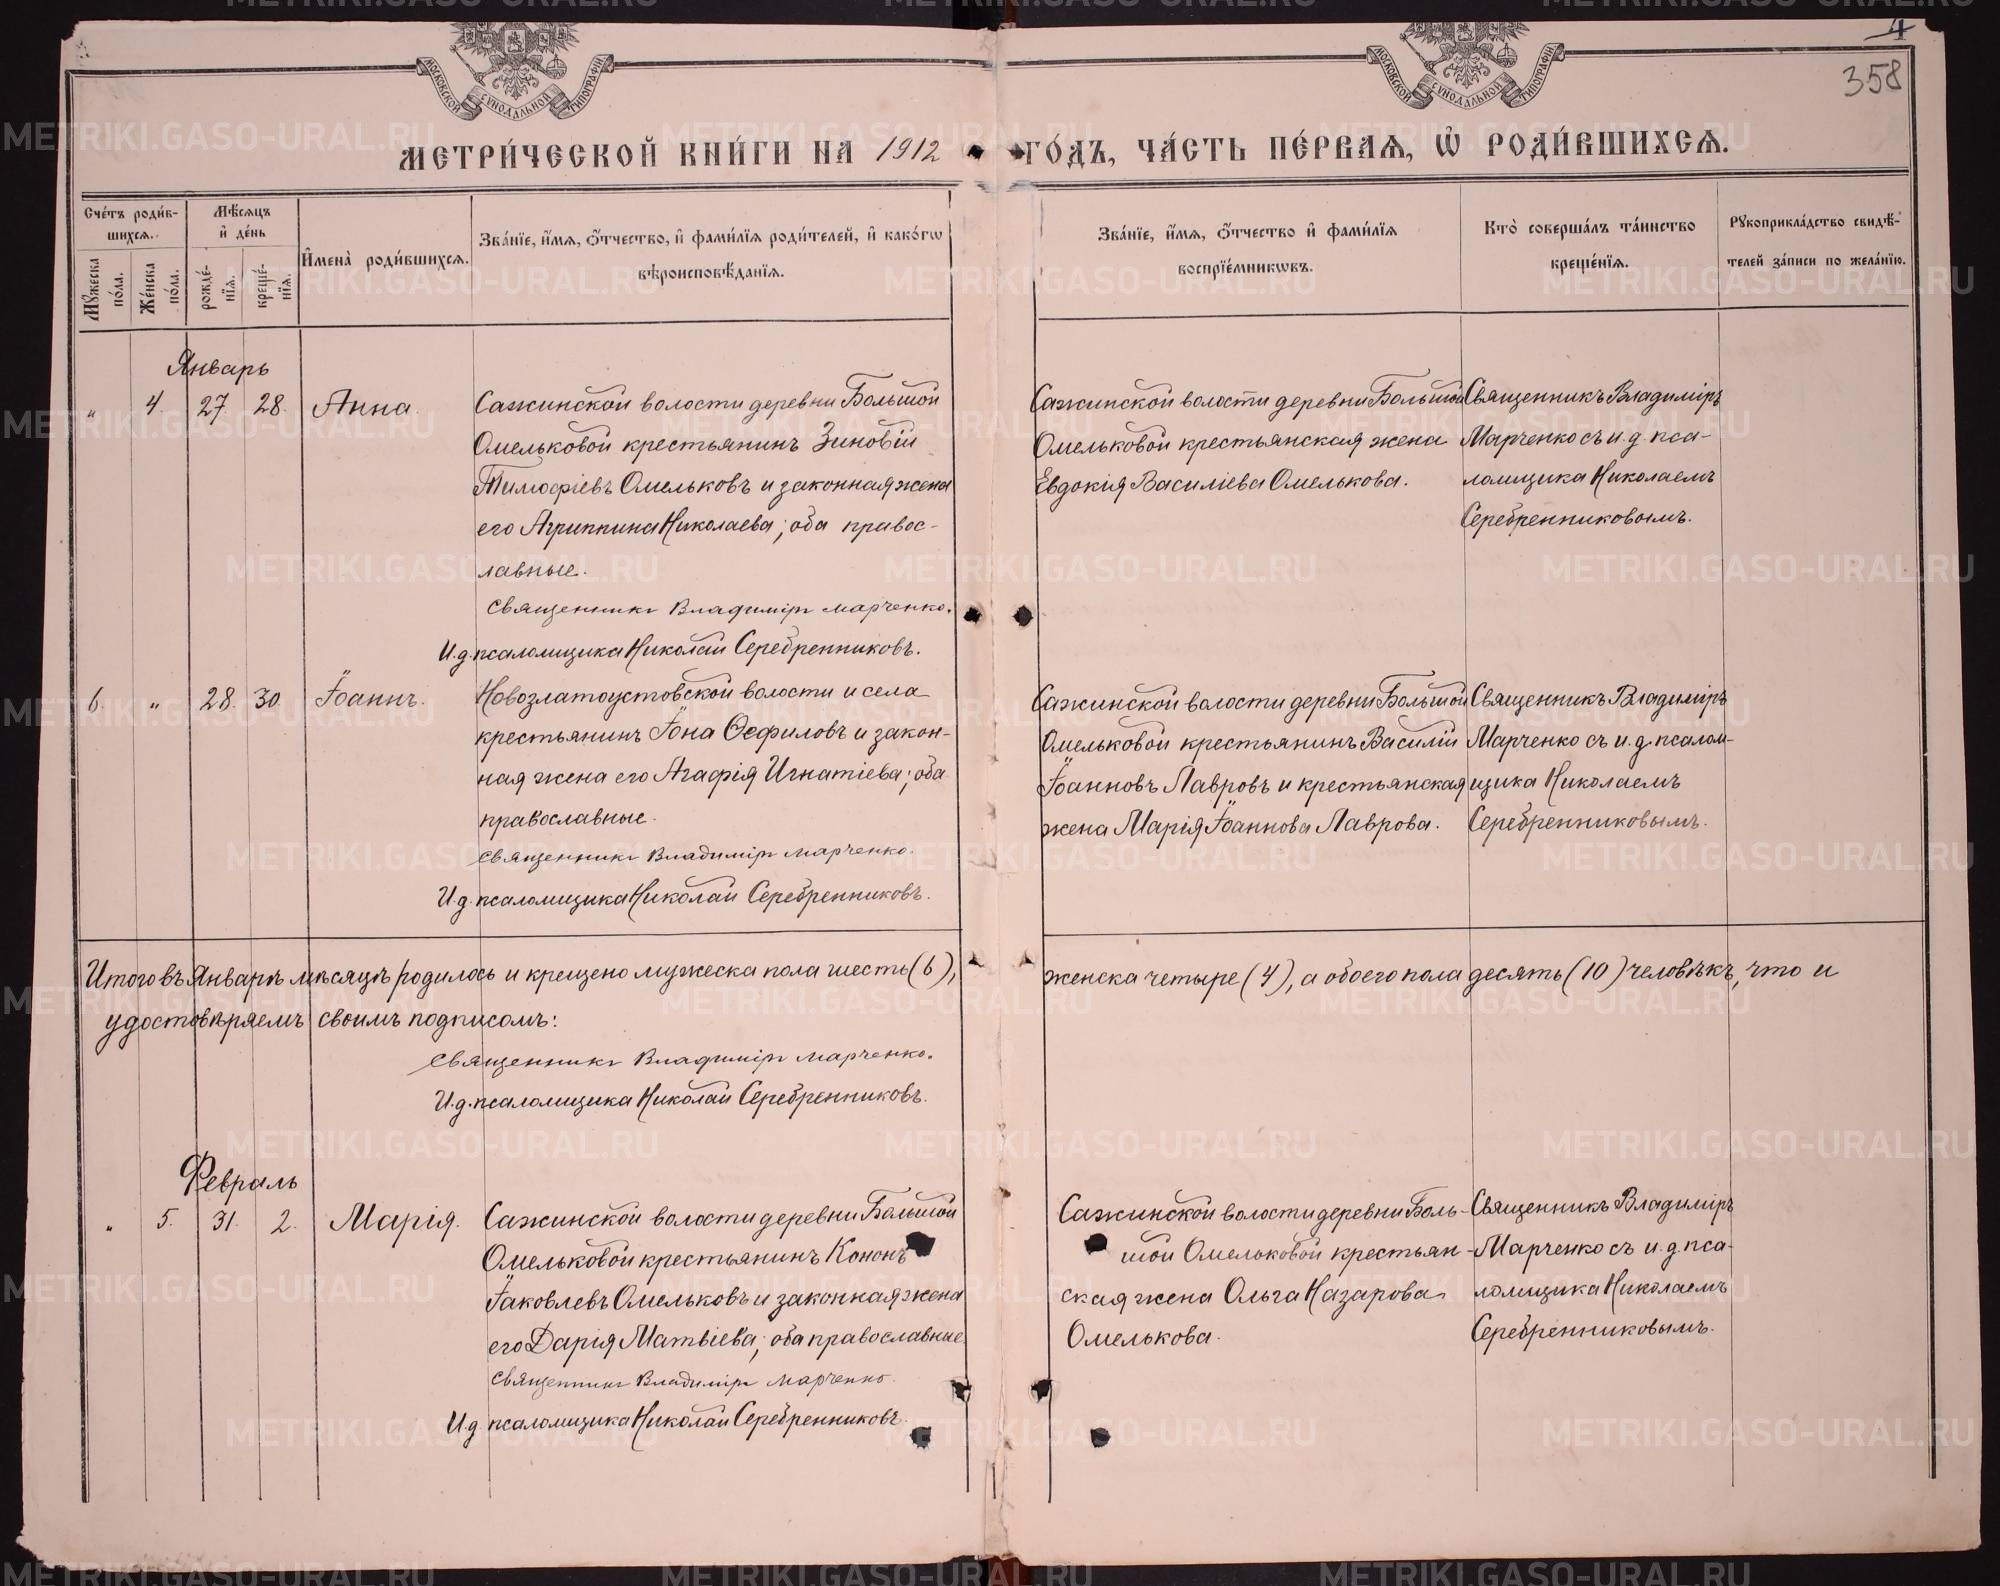 4
358
МОСКОВСКОЙ СѴНОДАЛЬНОЙ ТИПОГРАФІИ
МОСКОВСКОЙ СѴНОДАЛЬНОЙ ТИПОГРАФІИ
МЕТРИ́ЧЕСКОЙ КНИ́ГИ НА 1912 ГО́ДЪ, ЧА́СТЬ ПЕ́РВАѦ, Ѡ҆ РОДИ́ВШИХСѦ.
Сче́тъ роди́в-
шихсѧ.
Мѣ́сѧцъ
и҆ де́нь
Мꙋ́жеска
по́ла.
Же́нска
по́ла.
рожде́-
нїѧ.
креще́-
нїѧ.
И҆мена̀ роди́вшихсѧ.
Зва́нїе, и҆́мѧ, ѻ҆́тчество, и҆ фами́лїѧ роди́телей, и҆ како́гѡ
вѣроисповѣ́данїѧ.
Зва́нїе, и҆́мѧ, ѻ҆́тчество и҆ фами́лїѧ
воспрїе́мникѡвъ.
Кто̀ соверша́лъ та́инство
креще́нїѧ.
Рꙋкоприкла́дство свидѣ́-
телей за́писи по жела́нїю.
Январь
„ 4. 27. 28. Анна.
Сажинской волости деревни Большой
Омельковой крестьянинъ Зиновій
Тимофіевъ Омельковъ и законная жена
его Агриппина Николаева; оба правос-
лавные.
Священникъ Владиміръ Марченко.
И.д. псаломщика Николай Серебренниковъ.
Сажинской волости деревни Большой
Омельковой крестьянская жена
Евдокія Василіева Омелькова.
Священникъ Владиміръ
Марченко съ и.д. пса-
ломщика Николаемъ
Серебренниковымъ.
6. „ 28. 30. Іоаннъ.
Новозлатоустовской волости и села
крестьянинъ Іона Ѳефиловъ и закон-
ная жена его Агафія Игнатіева; оба
православные.
Священникъ Владиміръ Марченко.
И.д. псаломщика Николай Серебренниковъ.
Сажинской волости деревни Большой
Омельковой крестьянинъ Василій
Іоанновъ Лавровъ и крестьянская
жена Марія Іоаннова Лаврова.
Священникъ Владиміръ
Марченко съ и.д. псалом-
щика Николаемъ
Серебренниковымъ.
Итого въ Январѣ мѣсяцѣ родилось и крещено мужеска пола шесть (6), женска четыре (4), а обоего пола десять (10) человѣкъ, что и
удостовѣряемъ своимъ подписомъ:
Священникъ Владиміръ Марченко.
И.д. псаломщика Николай Серебренниковъ.
Февраль
„ 5. 31. 2. Марія.
Сажинской волости деревни Большой
Омельковой крестьянинъ Кононъ
Іаковлевъ Омельковъ и законная жена
его Дарія Матвіева; оба православные
Священникъ Владиміръ Марченко.
И.д. псаломщика Николай Серебренниковъ.
Сажинской волости деревни Боль-
шой Омельковой крестьян-
ская жена Ольга Назарова
Омелькова.
Священникъ Владиміръ
Марченко съ и.д. пса-
ломщика Николаемъ
Серебренниковымъ.
METRIKI.GASO-URAL.RU